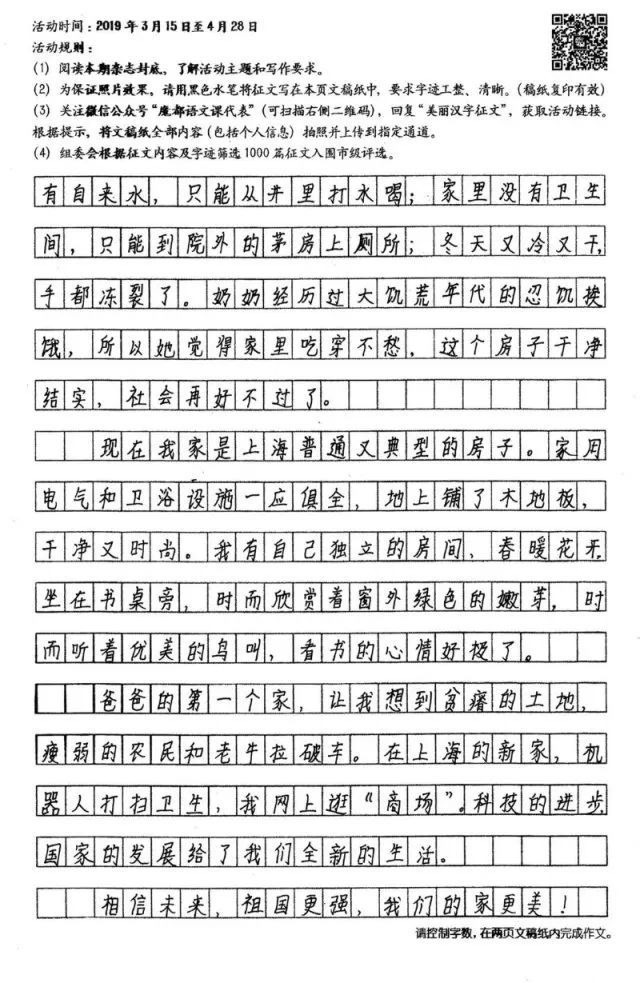 活动时间：2019 年 3 月 15 日至 4 月 28 日
活动规则：
（1）阅读本期杂志封底，了解活动主题和写作要求。
（2）为保证照片效果，请用黑色水笔将征文写在本页文稿纸中，要求字迹工整、清晰。（稿纸复印有效）
（3）关注微信公众号“魔都语文课代表”（可扫描右侧二维码），回复“美丽汉字征文”，获取活动链接。
根据提示，将文稿纸全部内容（包括个人信息）拍照并上传到指定通道。
（4）组委会根据征文内容及字迹筛选 1000 篇征文入围市级评选。
有自来水，只能从井里打水喝；家里没有卫生
间，只能到院外的茅房上厕所；冬天又冷又干，
手都冻裂了。奶奶经历过大饥荒年代的忍饥挨
饿，所以她觉得家里吃穿不愁，这个房子干净
结实，社会再好不过了。
现在我家是上海普通又典型的房子。家用
电气和卫浴设施一应俱全，地上铺了木地板，
干净又时尚。我有自己独立的房间，春暖花开
坐在书桌旁，时而欣赏着窗外绿色的嫩芽，时
而听着优美的鸟叫，看书的心情好极了。
爸爸的第一个家，让我想到贫瘠的土地，
瘦弱的农民和老牛拉破车。在上海的新家，机
器人打扫卫生，我网上逛“商场”。科技的进步
国家的发展给了我们全新的生活。
相信未来，祖国更强，我们的家更美！
请控制字数，在两页文稿纸内完成作文。